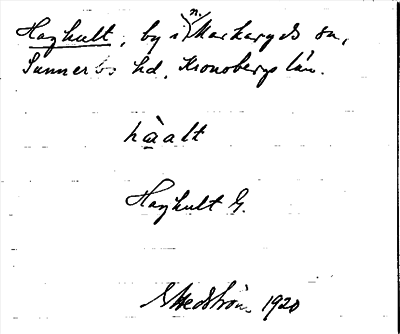 Haghult, by i n. Markaryds sn,
Sunnerbo hd, Kronobergs län.
hàalt
Haghult G.
G Hedström 1920